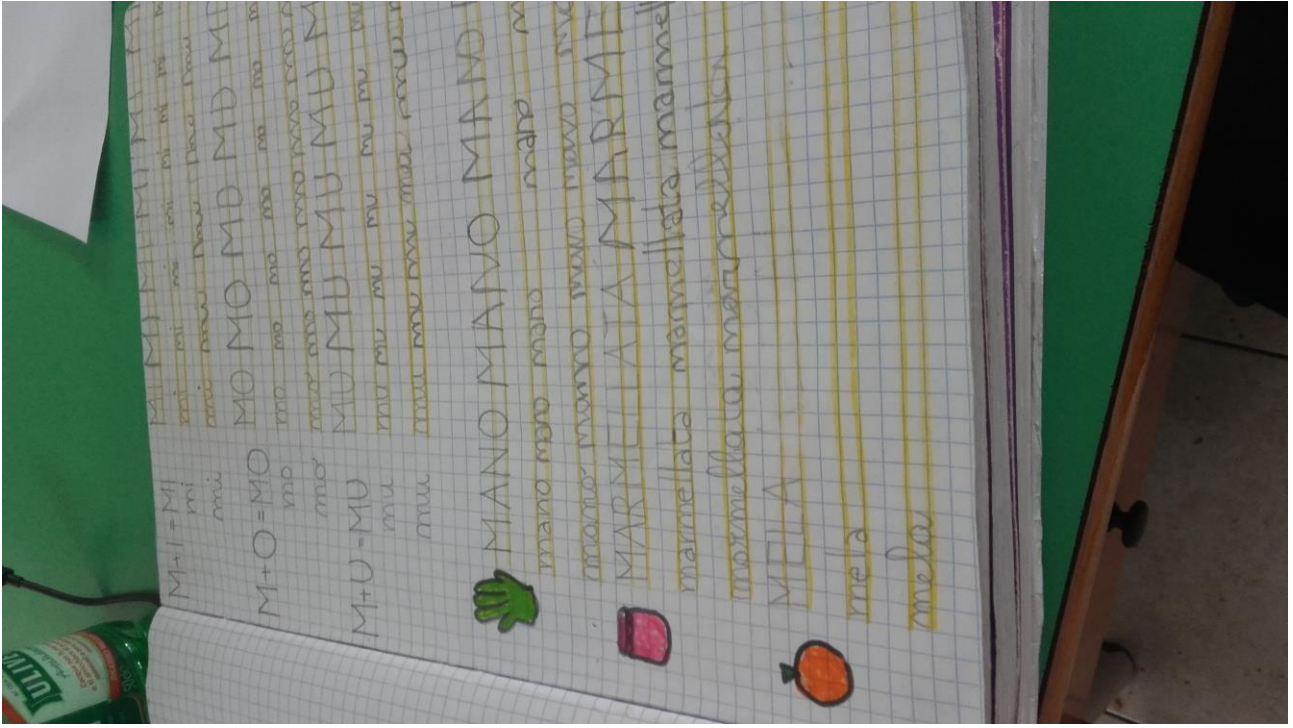 M+I=MI MI MI MI MI MI M
mi mi mi mi mi mi mi
mi mi mi mi mi mi
M+O=MO MO MO MO MO M
mo mo mo mo mo mo mo mo
mo mo mo mo mo mo mo mo
M+U=MU MU MU MU MU M
mu mu mu mu mu mu mu
mu mu mu mu mu mu mu
MANO MANO MANO
mano mano mano mano
mano mano mano mano
MARMELLATA MARME
marmellata marmellata marmell
marmellata marmellata
MELA
mela
mela
ULIV